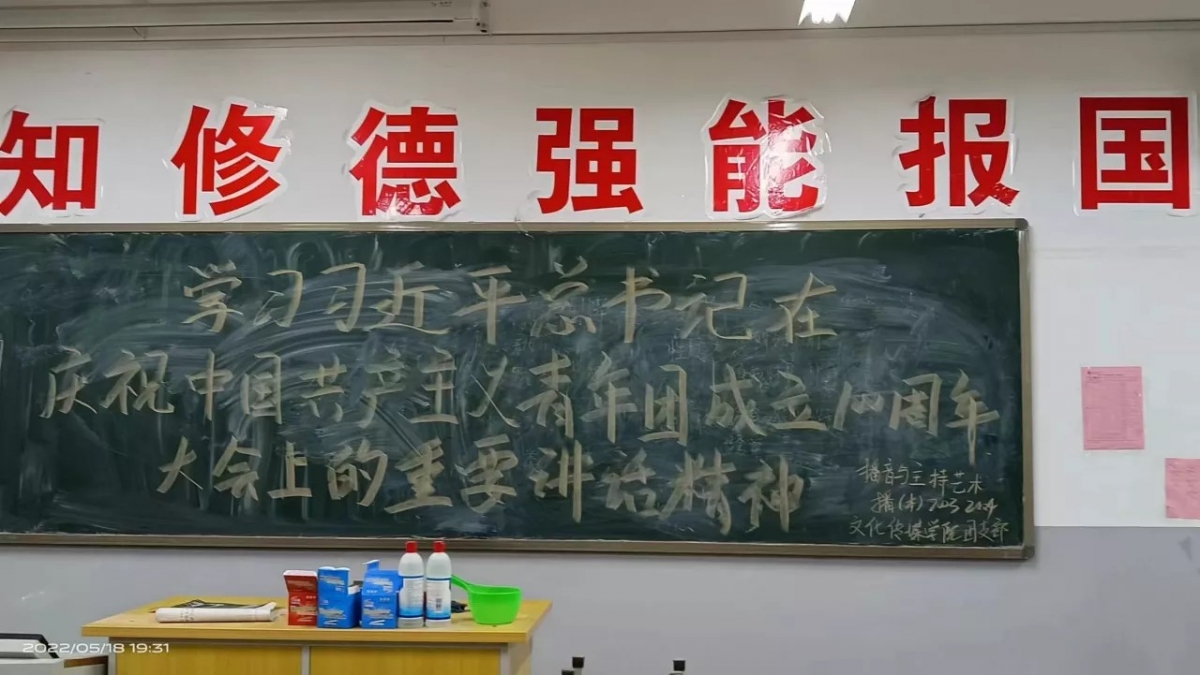 知修德强能报国
学习习近平总书记在
庆祝中国共产主义青年团成立100周年
大会上的重要讲话精神
播音与主持艺术
播(本)2103 2104
文化传媒学院团支部
2022/05/18 19:31